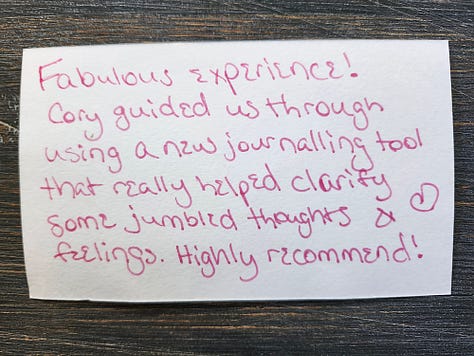 Fabulous experience!
Cory guided us through
using a new journalling tool
that really helped clarify
some jumbled thoughts &
feelings. Highly recommend!